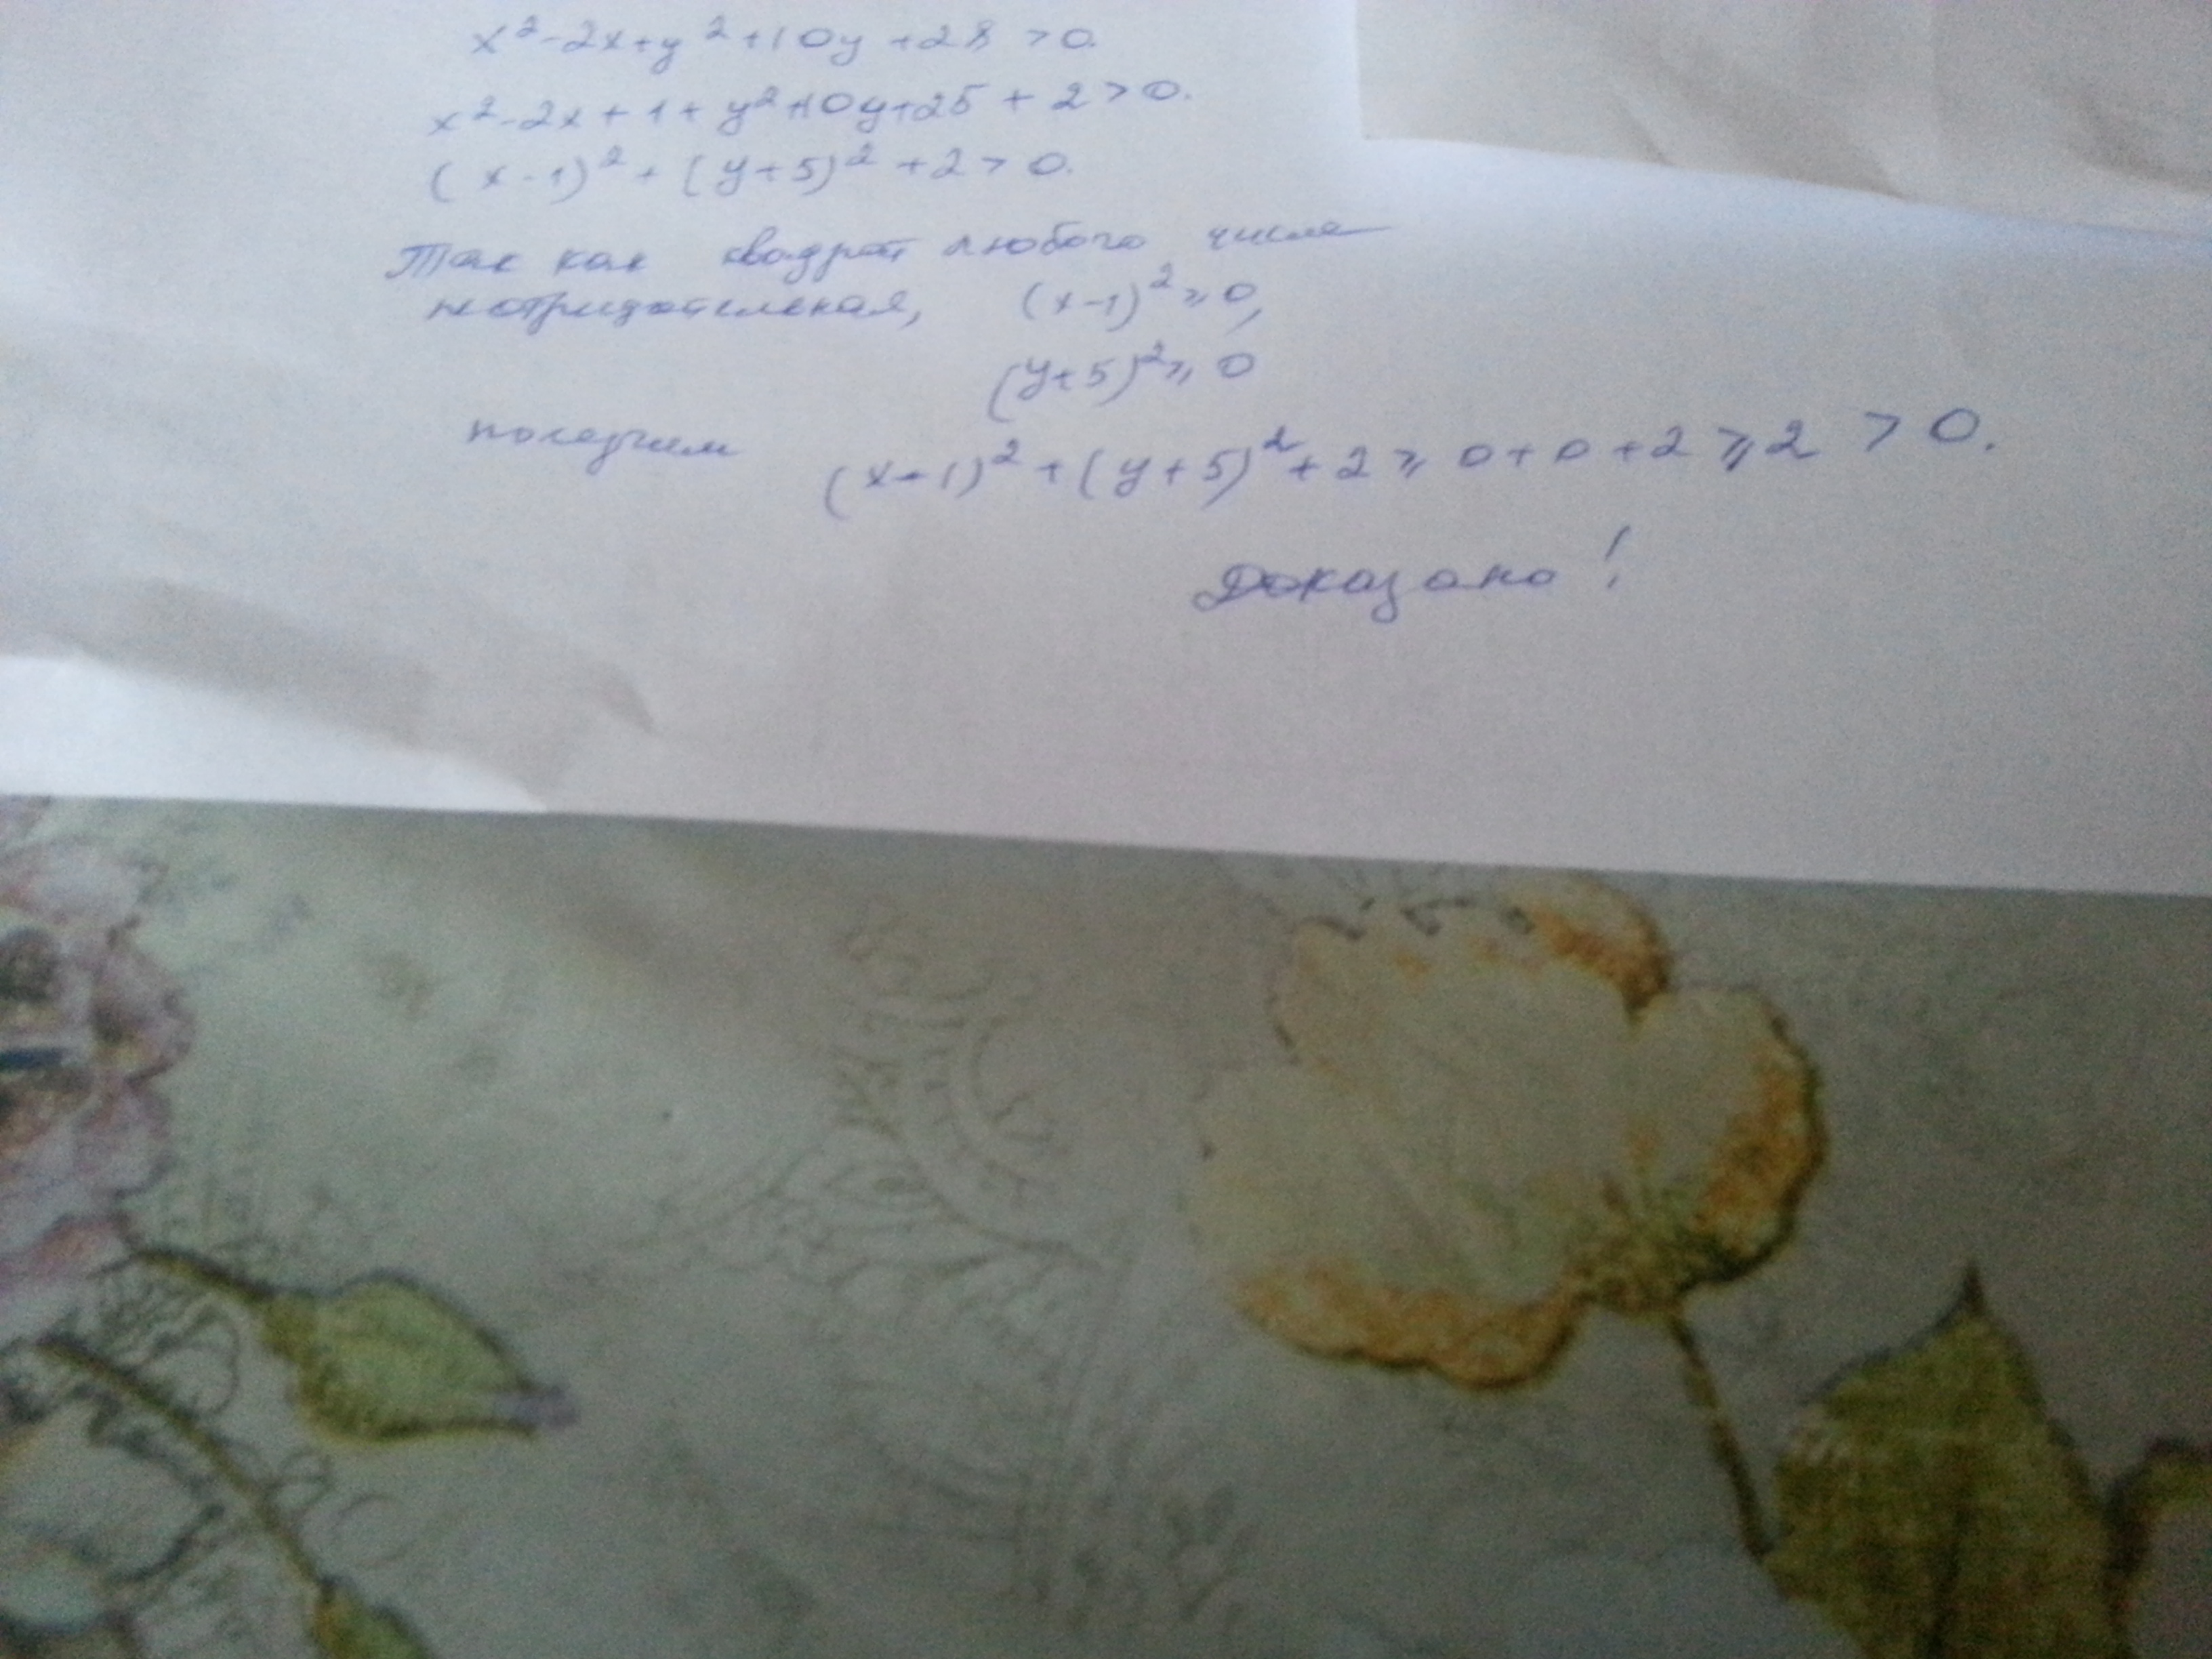 x²-2x+y²+10y+28>0.
x²-2x+1+y²+10y+25+2>0.
(x-1)²+(y+5)²+2>0.
Так как квадрат любого числа
неотрицательная, (x-1)²⩾0,
(y+5)²⩾0
получим
(x-1)²+(y+5)²+2⩾0+0+2⩾2>0.
Доказано!